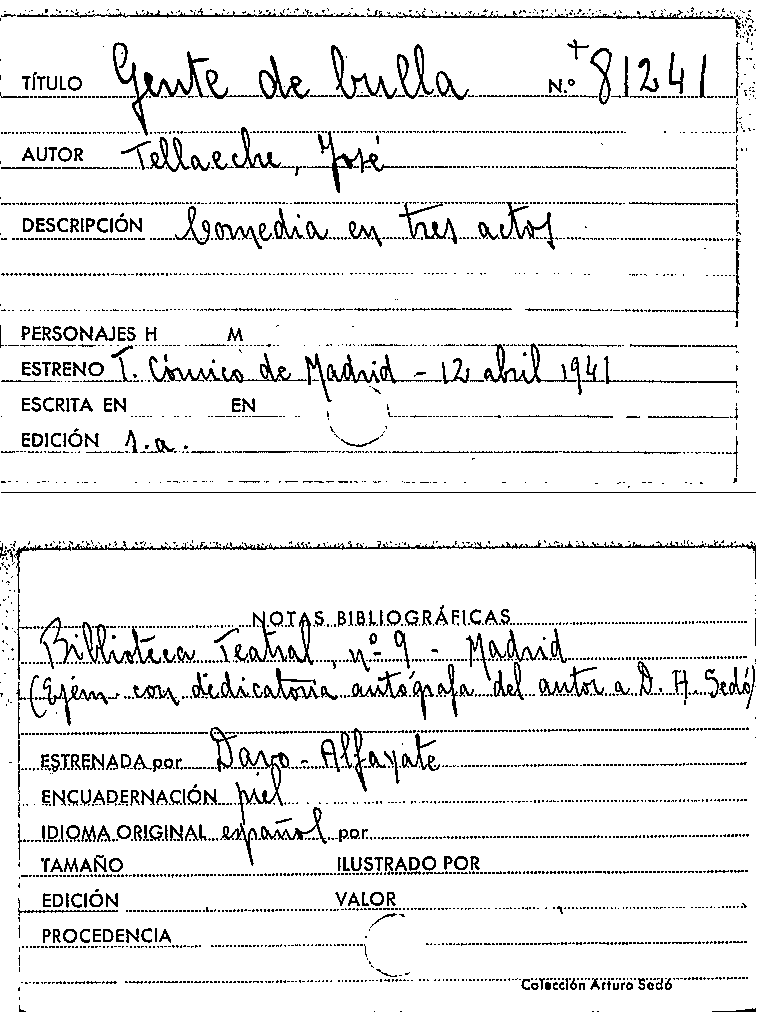 TÍTULO Gente de bulla N.º + 81241
AUTOR Tellaeche, José
DESCRIPCIÓN Comedia en tres actos
PERSONAJES H M
ESTRENO T. Cómico de Madrid - 12 abril 1941
ESCRITA EN EN
EDICIÓN s.a.
NOTAS BIBLIOGRÁFICAS
Biblioteca Teatral, nº 9 - Madrid
(Ejém. con dedicatoria autógrafa del autor a D. A. Sedó)
ESTRENADA por Davo - Alfayate
ENCUADERNACIÓN piel
IDIOMA ORIGINAL español por
TAMAÑO ILUSTRADO POR
EDICIÓN VALOR
PROCEDENCIA
Colección Arturo Sedó